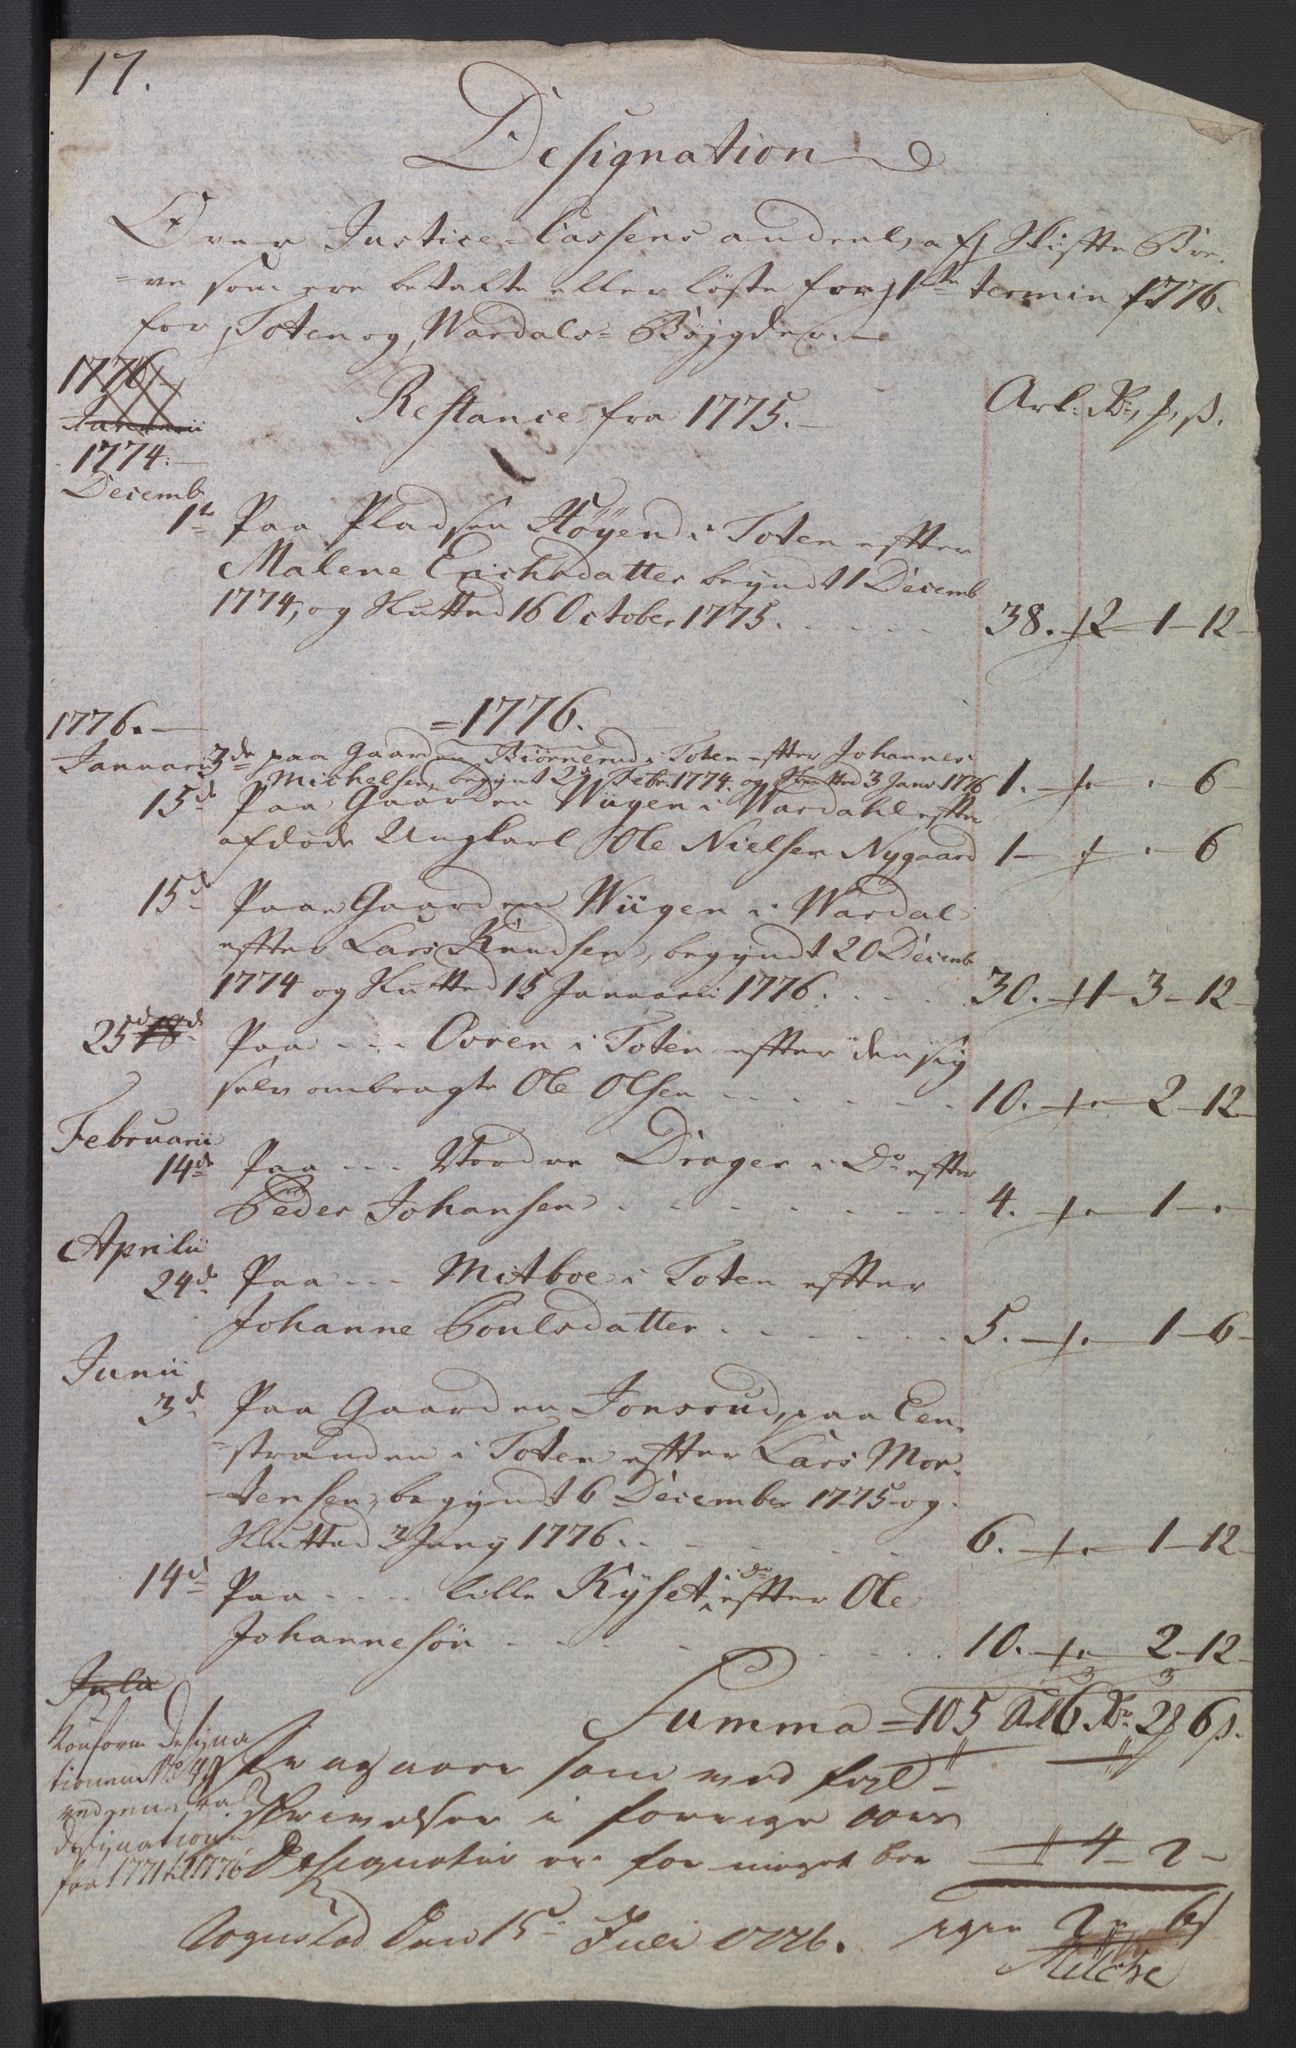 17.
Designation
Over Justice-Cassens andeel af Skifte Bre-
-ve som ere betalte eller löste for 1te termin 1776.
for Toten og Wardals- Böygder.
1776
Januarii
Restance fra 1775.
Ark: Rdr, f, ß.
1774.
Decemb
1te Paa Pladsen Höyen i Toten effter
Malene Erichsdatter begyndt 1 Decemb
1774, og slutted 16 October 1775. 38. 2 1 12
1776. =1776.
Januari 3de paa Gaarden Biörnerud i Toten effter Johannes
Michelsen, begynt 29 Febr: 1774. og sluttet 3 Janv 1776 1. . . 6
15de Paa Gaarden Wügen i Wardahl effter
afdöde Ungkarl Ole Nielsen Nygaard 1 . . 6
15de Paa Gaarden Wügen i Wardal
effter Lars Knudsen, begyndt 20 Decemb
1774 og slutted 15 Januarii 1776. 30. 1 3 12
25de 18de Paa --- Ovren i Toten effter den sig
selv ombragte Ole Olsen 10. . 2 12
Februarii
14de Paa --- Nordre Drager i Do effter
Peder Johansen 4. . 1 .
Aprilii
24de Paa --- Mitboe i Toten effter
Johanne Poulsdatter 5. . 1 6
Junii
3de Paa Gaarden Jonsrud, paa Een-
-stranden i Toten effter Lars Mor-
-tensen, begyndt 6 December 1775 og
slutted 3 Juny 1776. 6. . 1 12
14de Paa --- lille Kyset i do effter Ole
Johannesön 10. . 2 12
Julii
Summa = 105 Ark 6 Rdr 2 f 6 ß.
Konform Designa
tionen No 49
ved general
designationen
fra 1771 til 1776
som ved feyl-
Skrivelser i forrige aars
Designation er for meget be 4 2
egen 2 6
Wognstad den 15de Juli 1776.